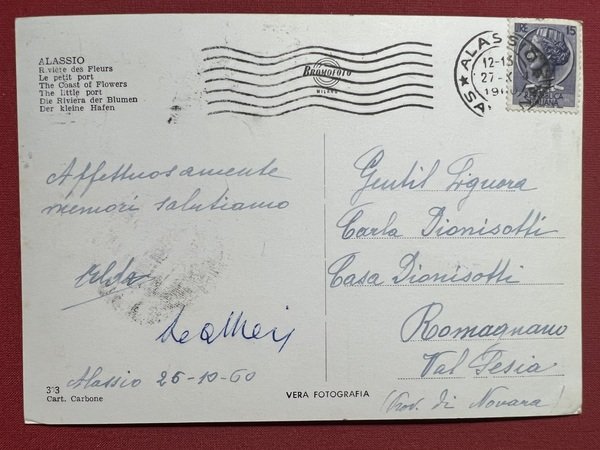 ALASSIO
Riviére des Fleurs
Le petit port
The Coast of Flowers
The little port
Die Riviera der Blumen
Der kleine Hafen
BROMOFOTO
MILANO
ALASSIO
12-13
27-X
19
15
REPUBBLICA
ITALIANA
Affettuosamente
memori salutiamo
Alda
Alassio 25-10-60
Gentil Signora
Carla Dionisotti
Casa Dionisotti
Romagnano
Val Sesia
(Prov. di Novara)
Cart. Carbone
VERA FOTOGRAFIA